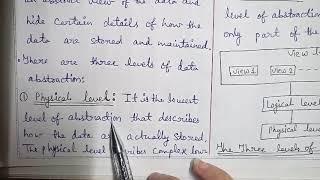 an abstract view of the data and
hide certain details of how the
data are stored and maintained.
• There are three levels of data
abstraction:
① Physical level: It is the lowest
level of abstraction that describes
how the data are actually stored.
The physical level describes complex low-
level of abstraction
only part of the
View 1
View 2
Logical
Physical
The Three levels of